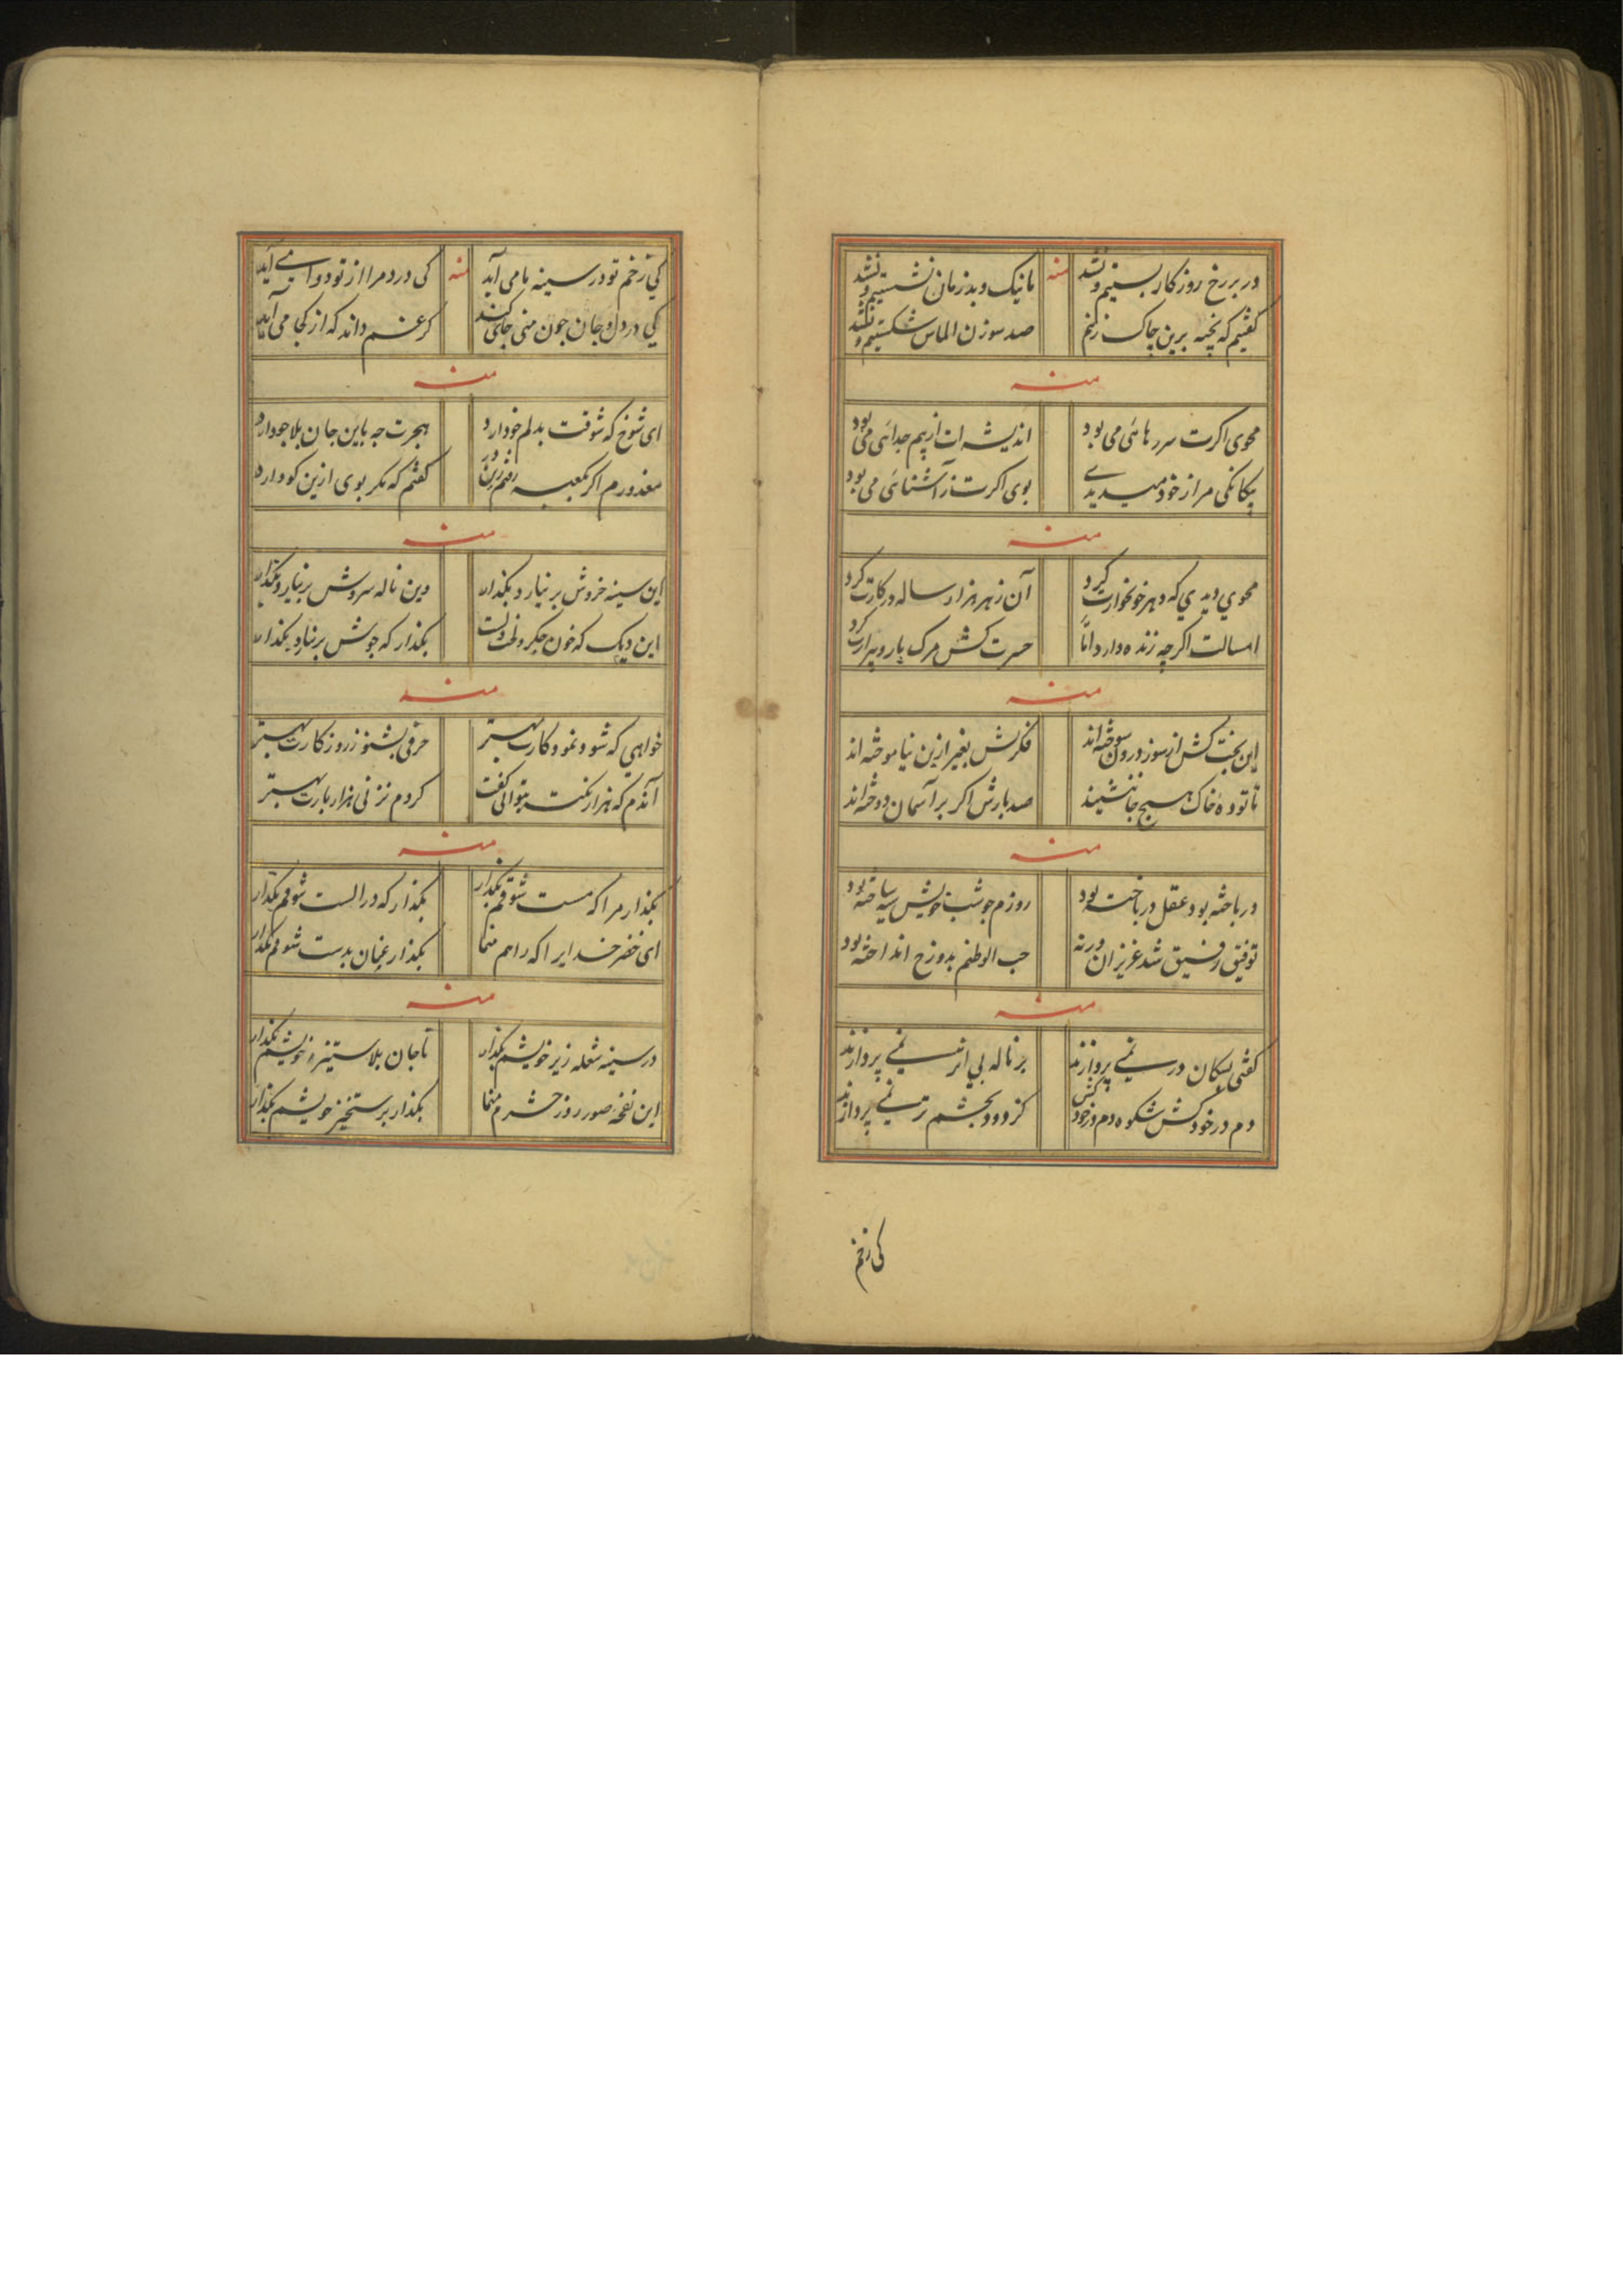 در بر رخ روزکار بستیم و نشد
منه
با نیک و بد زمان نشستیم و نشد
کفتیم که بخیه برین چاک زنم
صد سوزن الماس شکستیم و نشد
منه
محوی اکرت سر رهائی می بود
اندیشه ات از بیم جدائی می بود
بیکانکی مرا ز خود میدیدی
بوی اکرت ز آشنائی می بود
منه
محوی دیدی که دهر خونخوارت کرد
آن زهر هزار ساله در کارت کرد
امسالت اکرچه زنده دارد اما
حسرت کش مرک پار و پیرارت کرد
منه
این بخت کش از سوز درون سوخته اند
فکرش بغیر ازین نیاموخته اند
تا توده خاک هیچ جا ننشیند
صد بارش اکر بر آسمان دوخته اند
منه
درباخته بود عقل درباخته بود
روزم جو شب خویش سیه ساخته بود
توفیق رفیق شد عزیزان ورنه
حب الوطنم بدوزخ انداخته بود
منه
کفتی بسکان در نمی پردازند
بر ناله بی اثر نمی پردازند
دم در خود کش شکوه دم در خود کش
کز دود بچشم تر نمی پردازند
کی زخم
کی زخم تو در سینه ما می آید
منه
کی درد مرا از تو دوا می آید
کی در دل و جان جون منی جای کند
کر غم داند که از کجا می آید
منه
ای شوخ که شوقت بدلم خو دارد
هجرت جه باین جان بلاجو دارد
معذورم اکر بکعبه رفتم زین در
کفتم که مکر بوی ازین کو دارد
منه
این سینه خروش بر نیارد بکذار
وین ناله سروش بر نیارد بکذار
این دیک که خون جکر و لخت دلست
بکذار که جوش بر نیارد بکذار
منه
خواهی که شود نمود کارت بهتر
حرفی بشنو ز روزکارت بهتر
آندم که هزار نکته بتوانی کفت
کر دم نزنی هزار بارت بهتر
منه
بکذار مرا که مست شوقم بکذار
بکذار که در الست شوقم بکذار
ای خضر خدایرا که راهم منما
بکذار عنان بدست شوقم بکذار
منه
در سینه شعله زیر خویشم بکذار
تا جان بلا ستیزه خویشم بکذار
این نفخه صور روز حشرم منما
بکذار برستخیز خویشم بکذار